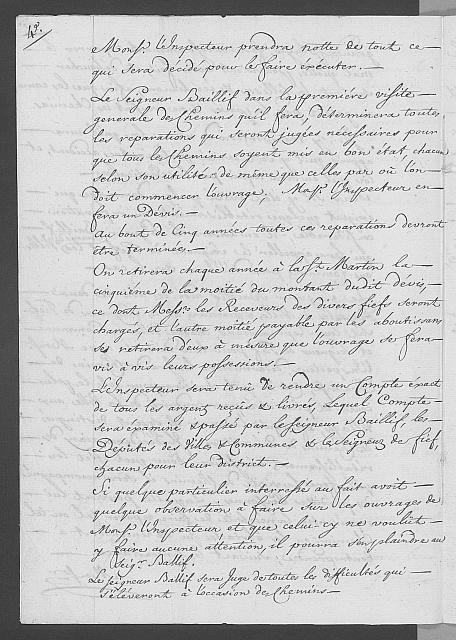 4º.
Monsr. l'Inspecteur prendra notte de tout ce —
qui sera décidé pour le faire éxécuter. —
Le Seigneur Baillif dans la premiére visite
generale des Chemins qu'il fera, déterminera toutes
les reparations qui seront jugées nécessaires pour
que tous les Chemins soyent mis en bon état, chacun
selon son utilité, de même que celles par où l'on
doit commencer l'ouvrage, Monsr. l'Inspecteur en
fera un Dévis. —
Au bout de Cinq années toutes ces reparations devront
être terminées. —
On retirera chaque année à la St. Martin la —
cinquiéme de la moitié du montant dudit dévis, —
ce dont Messrs. les Receveurs des divers fiefs seront
chargés, et l'autre moitié payable par les aboutissans
se retirera d'eux à mesure que l'ouvrage se fera
vis à vis leurs possessions. —
L'Inspecteur sera tenu de rendre un Compte éxact
de tous les argens reçus & livrés, lequel Compte
sera éxaminé & passé par le Seigneur Baillif, les
Députés des Villes, & Communes & les Seigneurs de fief,
chacun pour leur district. —
Si quelque particulier interressé au fait avoit —
quelque observation à faire sur les ouvrages de
Monsr. l'Inspecteur et que celui-cy ne voulut
y faire aucune attention, il pourra s'en plaindre au
Seigr. Ballif.
Le Seigneur Ballif sera Juge de toutes les difficultés qui —
s'éléveront à l'occasion des Chemins —